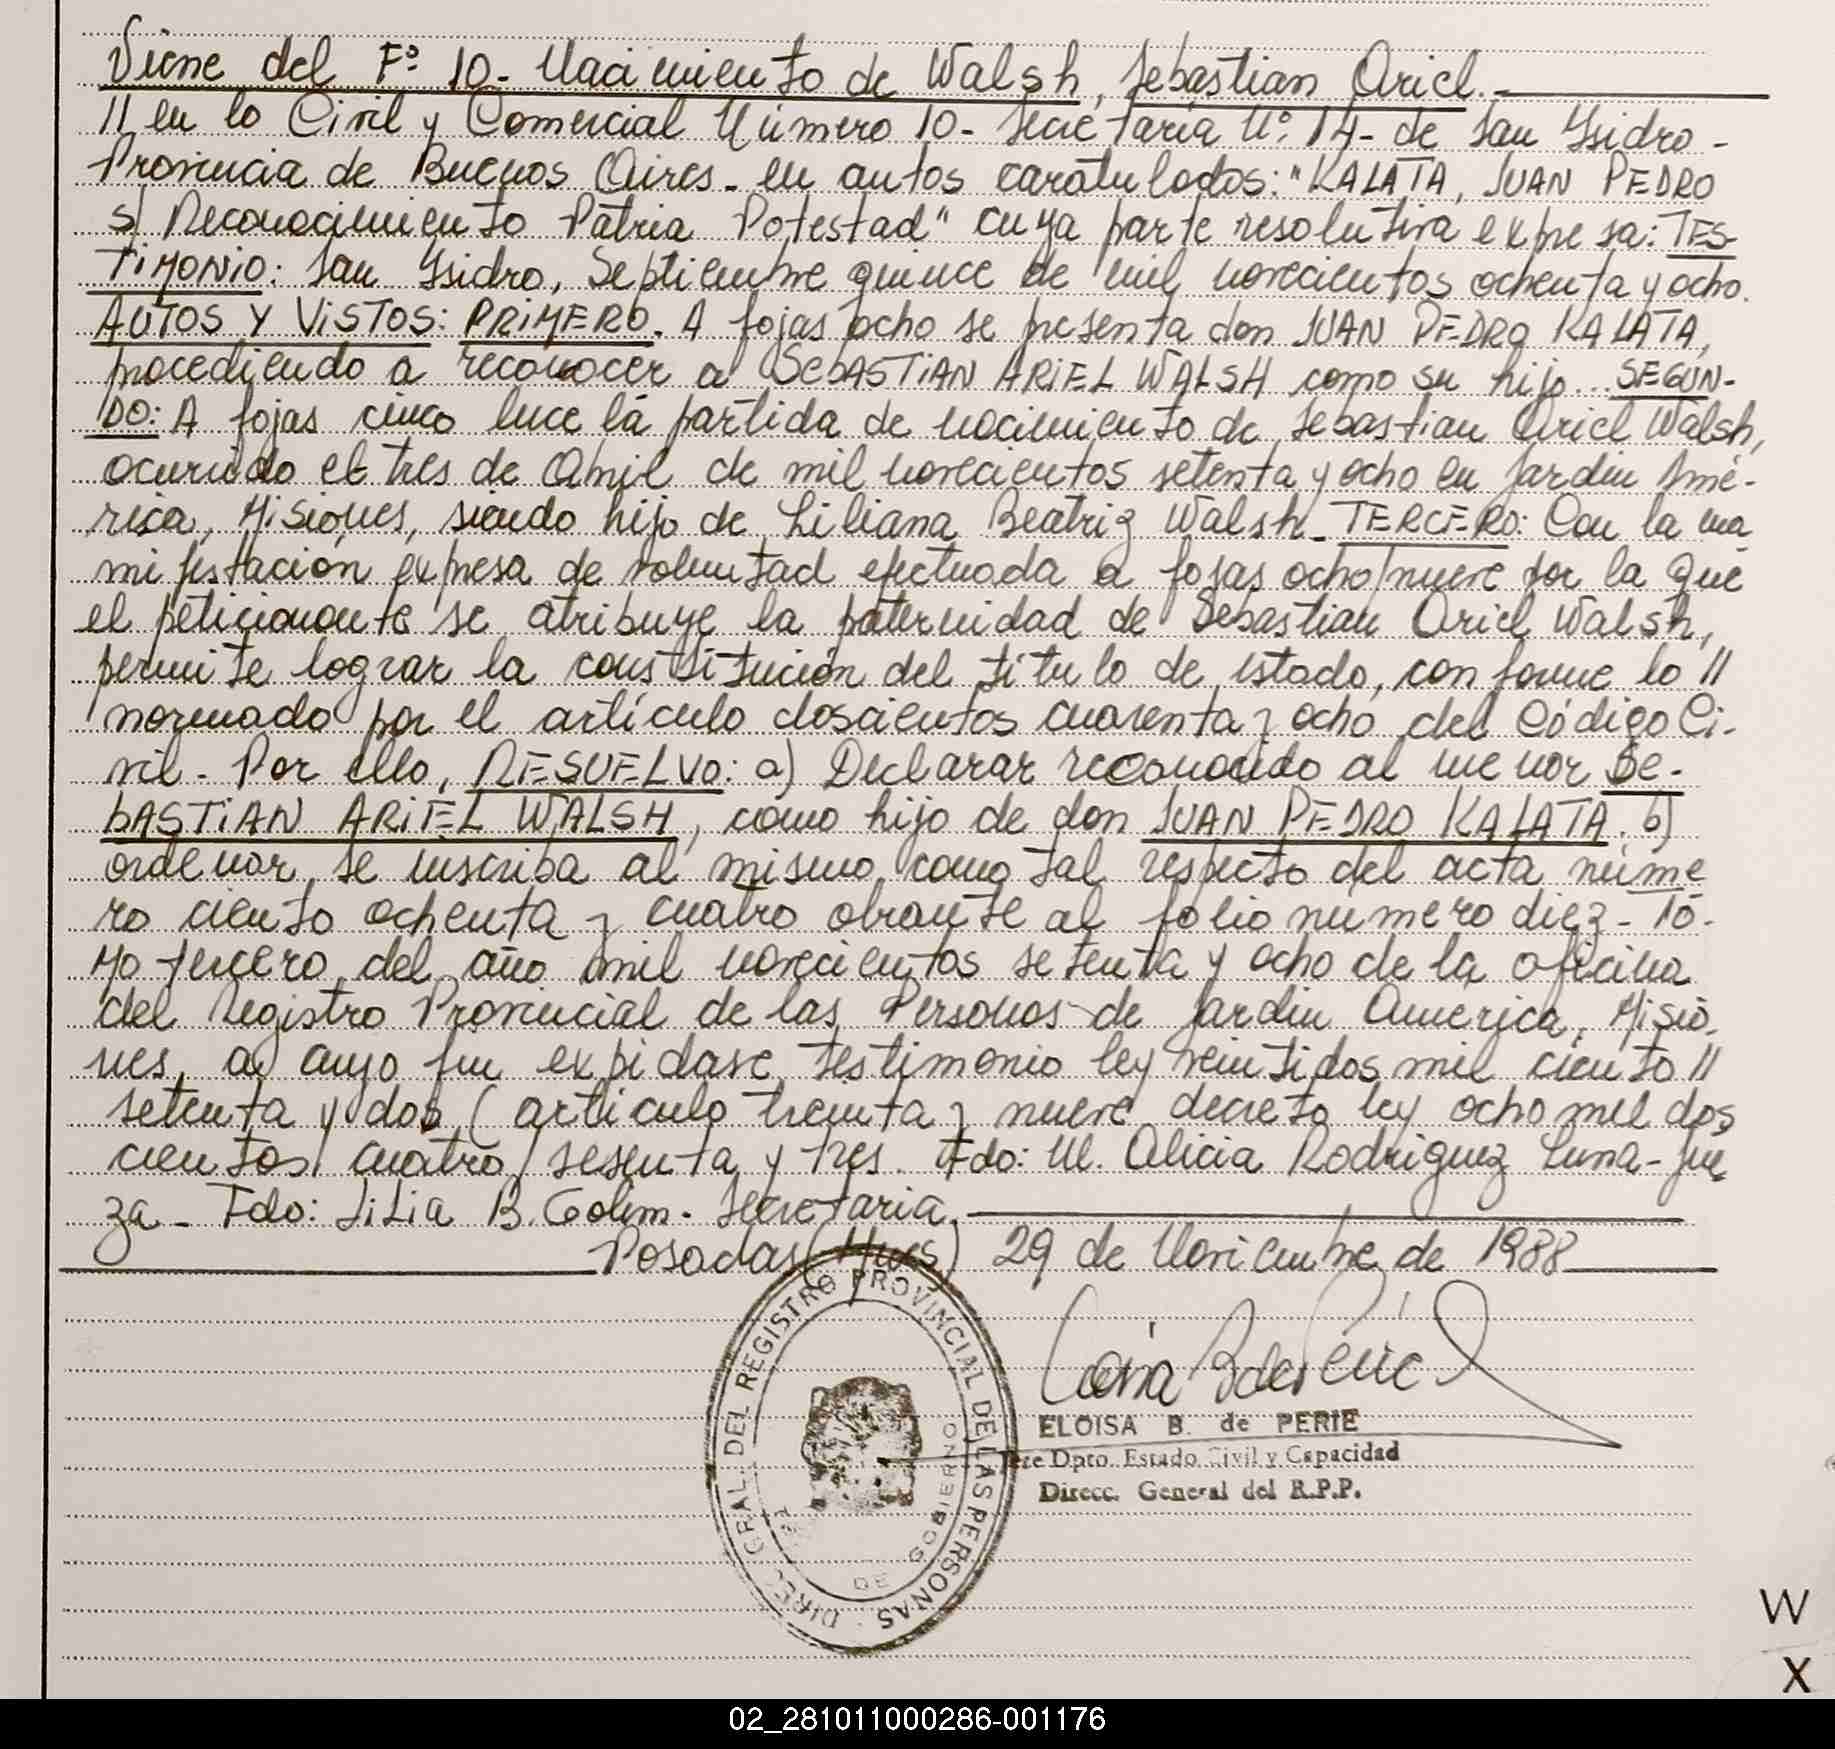 Viene del Fº 10- Nacimiento de Walsh, Sebastian Ariel.-
// en lo Civil y Comercial Número 10- Secretaría Nº 14- de San Isidro-
Provincia de Buenos Aires- en autos caratulados: "KALATA, JUAN PEDRO
s/ Reconocimiento Patria Potestad" cuya parte resolutiva expresa: TES-
TIMONIO: San Isidro, Septiembre quince de mil novecientos ochenta y ocho.
AUTOS Y VISTOS: PRIMERO. A fojas ocho se presenta don JUAN PEDRO KALATA,
procediendo a reconocer a SEBASTIAN ARIEL WALSH como su hijo... SEGUN-
DO: A fojas cinco luce la partida de nacimiento de Sebastian Ariel Walsh,
ocurrido el tres de Abril de mil novecientos setenta y ocho en Jardin Amé-
rica, Misiones, siendo hijo de Liliana Beatriz Walsh- TERCERO: Con la ma
mifestación expresa de voluntad efectuada a fojas ocho/nueve por la que
el peticionante se atribuye la paternidad de Sebastian Ariel Walsh,
permite lograr la constitución del titulo de estado, conforme lo //
normado por el artículo doscientos cuarenta y ocho del Código Ci-
vil- Por ello, RESUELVO: a) Declarar reconocido al menor SE-
BASTIAN ARIEL WALSH, como hijo de don JUAN PEDRO KALATA. b)
ordenar se inscriba al mismo como tal respecto del acta núme
ro ciento ochenta y cuatro obrante al folio número diez- To-
mo tercero del año mil novecientos setenta y ocho de la oficina
del Registro Provincial de las Personas de Jardin America, Misio-
nes, a cuyo fin expidase testimonio ley veintidos mil ciento //
setenta y dos (articulo treinta y nueve decreto ley ocho mil dos
cientos cuatro/sesenta y tres. Fdo: M. Alicia Rodriguez Luna- Jue
za- Fdo: Lilia B. Golim- Secretaria.
Posadas (Mnes) 29 de Noviembre de 1988
DIREC. GRAL. DEL REGISTRO PROVINCIAL DE LAS PERSONAS
DE GOBIERNO
ELOISA B. de PERIE
Jefe Dpto. Estado Civil y Capacidad
Direcc. General del R.P.P.
W
X
02_281011000286-001176